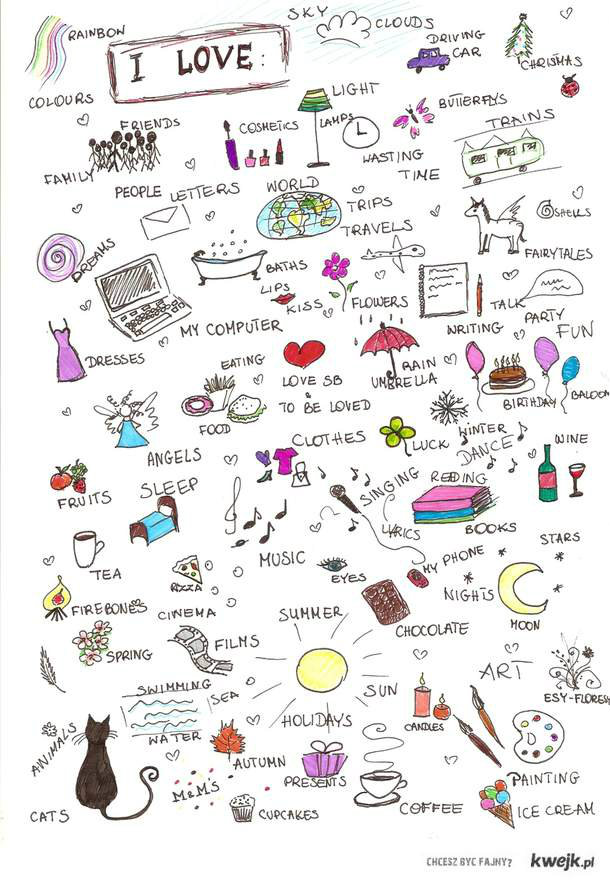 SKY
CLOUDS
RAINBOW
I LOVE:
DRIVING
CAR
CHRISMAS
COLOURS
LIGHT
LAMPS
BUTTERFLYS
FRIENDS
COSMETICS
TRAINS
WASTING
TIME
FAMILY
PEOPLE
LETTERS
WORLD
TRIPS
TRAVELS
SHELLS
FAIRYTALES
DREAMS
BATHS
LIPS
KISS
FLOWERS
TALK
PARTY
MY COMPUTER
WRITING
FUN
DRESSES
EATING
LOVE SB
&
TO BE LOVED
RAIN
UMBRELLA
BIRTHDAY
BALOON
FOOD
ANGELS
CLOTHES
LUCK
WINTER
DANCE
WINE
FRUITS
SLEEP
SINGING
REDING
LYRICS
BOOKS
STARS
TEA
MUSIC
EYES
MY PHONE
NIGHTS
PIZZA
FIREBONES
CINEMA
SUMMER
CHOCOLATE
MOON
SPRING
FILMS
SUN
ART
ESY-FLORESY
SWIMMING
SEA
WATER
HOLIDAYS
CANDLES
ANIMALS
AUTUMN
PRESENTS
PAINTING
M&M'S
CATS
CUPCAKES
COFFEE
ICE CREAM
CHCESZ BYC FAJNY? kwejk.pl